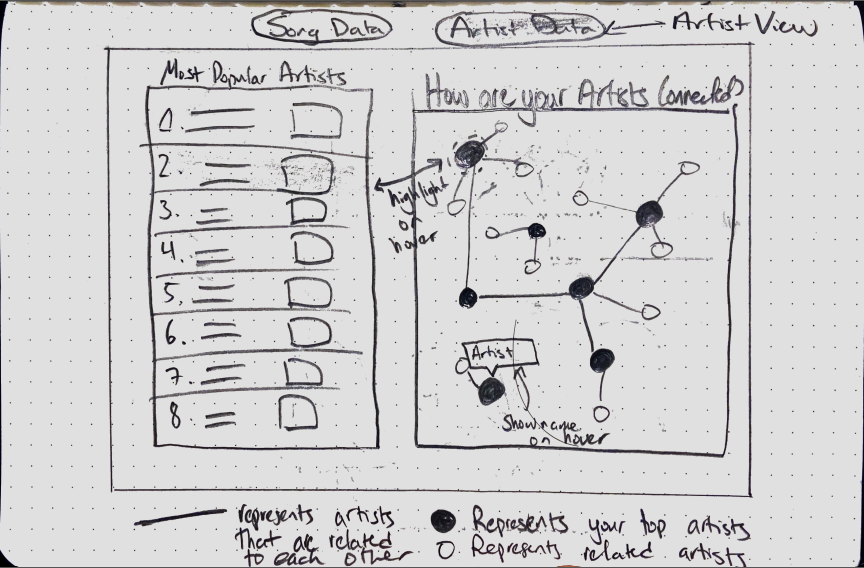 Song Data
Artist Data
Artist View
Most Popular Artists
How are your Artists Connected?
1.
2.
3.
4.
5.
6.
7.
8
highlight
on
hover
Artist
Show name
on hover
represents artists
that are related
to each other
Represents your top artists
Represents related artists